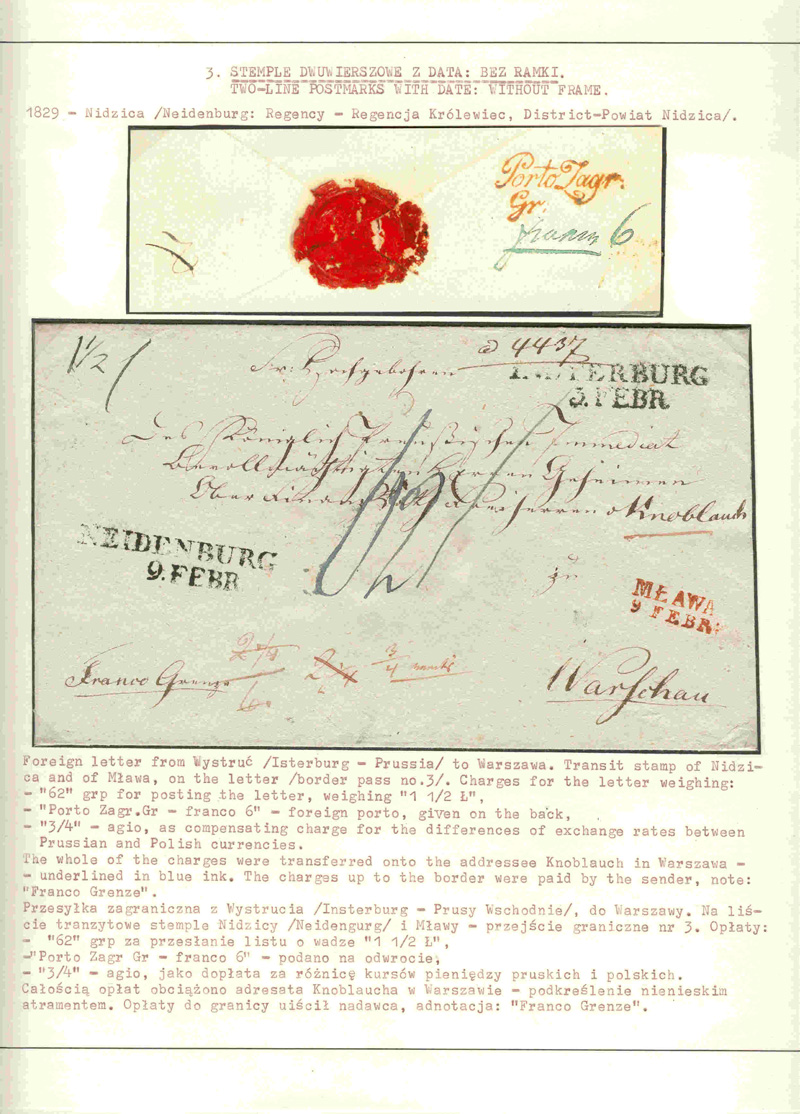 3. STEMPLE DWUWIERSZOWE Z DATA: BEZ RAMKI.
TWO-LINE POSTMARKS WITH DATE: WITHOUT FRAME.
1829 - Nidzica /Neidenburg: Regency - Regencja Królewiec, District-Powiat Nidzica/.
Porto Zagr.
Gr.
franco 6
1 1/2
4437
INSTERBURG
5. FEBR
Des Königlich Preußischen Immediat
Bevollmächtigten Herren Geheimen
Ober Finanz
Knoblauch
NEIDENBURG
9. FEBR
zu
MŁAWA
9 FEBR:
2 1/4
6
3/4
Franco Grenze
Warschau
Foreign letter from Wystruć /Isterburg - Prussia/ to Warszawa. Transit stamp of Nidzi-
ca and of Mława, on the letter /border pass no.3/. Charges for the letter weighing:
- "62" grp for posting the letter, weighing "1 1/2 Ł",
- "Porto Zagr.Gr - franco 6" - foreign porto, given on the back,
- "3/4" - agio, as compensating charge for the differences of exchange rates between
Prussian and Polish currencies.
The whole of the charges were transferred onto the addressee Knoblauch in Warszawa -
- underlined in blue ink. The charges up to the border were paid by the sender, note:
"Franco Grenze".
Przesyłka zagraniczna z Wystrucia /Insterburg - Prusy Wschodnie/, do Warszawy. Na liś-
cie tranzytowe stemple Nidzicy /Neidengurg/ i Mławy - przejście graniczne nr 3. Opłaty:
- "62" grp za przesłanie listu o wadze "1 1/2 Ł",
-"Porto Zagr Gr - franco 6" - podano na odwrocie,
- "3/4" - agio, jako dopłata za różnicę kursów pieniędzy pruskich i polskich.
Całością opłat obciążono adresata Knoblaucha w Warszawie - podkreślenie nienieskim
atramentem. Opłaty do granicy uiścił nadawca, adnotacja: "Franco Grenze".